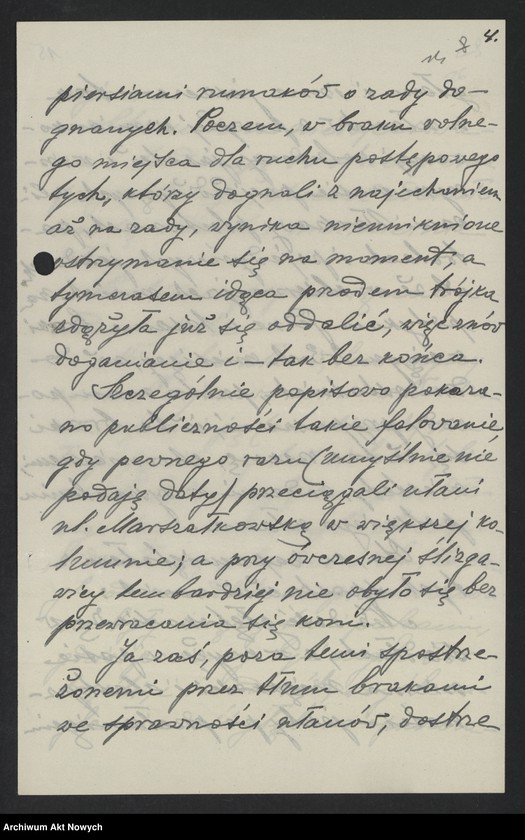 4.
8
piersiami rumaków o zady do-
gnanych. Poczem, w braku wolne-
go miejsca dla ruchu postępowego
tych, którzy dognali z najechaniem
aż na zady, wynika nieuniknione
wstrzymanie się na moment; a
tymczasem idąca przodem trójka
zdążyła już się oddalić, więc znów
doganianie i – tak bez końca.
Szczególnie popisowo pokaza-
no publiczności takie falowanie,
gdy pewnego razu (umyślnie nie
podaję daty) przeciągali ułani
ul. Marszałkowską w większej ko-
lumnie; a przy ówczesnej ślizga-
wicy tembardziej nie obyło się bez
przewracania się koni.
Ja zaś, poza temi spostrze-
żonemi przez tłum brakami
we sprawności ułanów, dostrze
Archiwum Akt Nowych